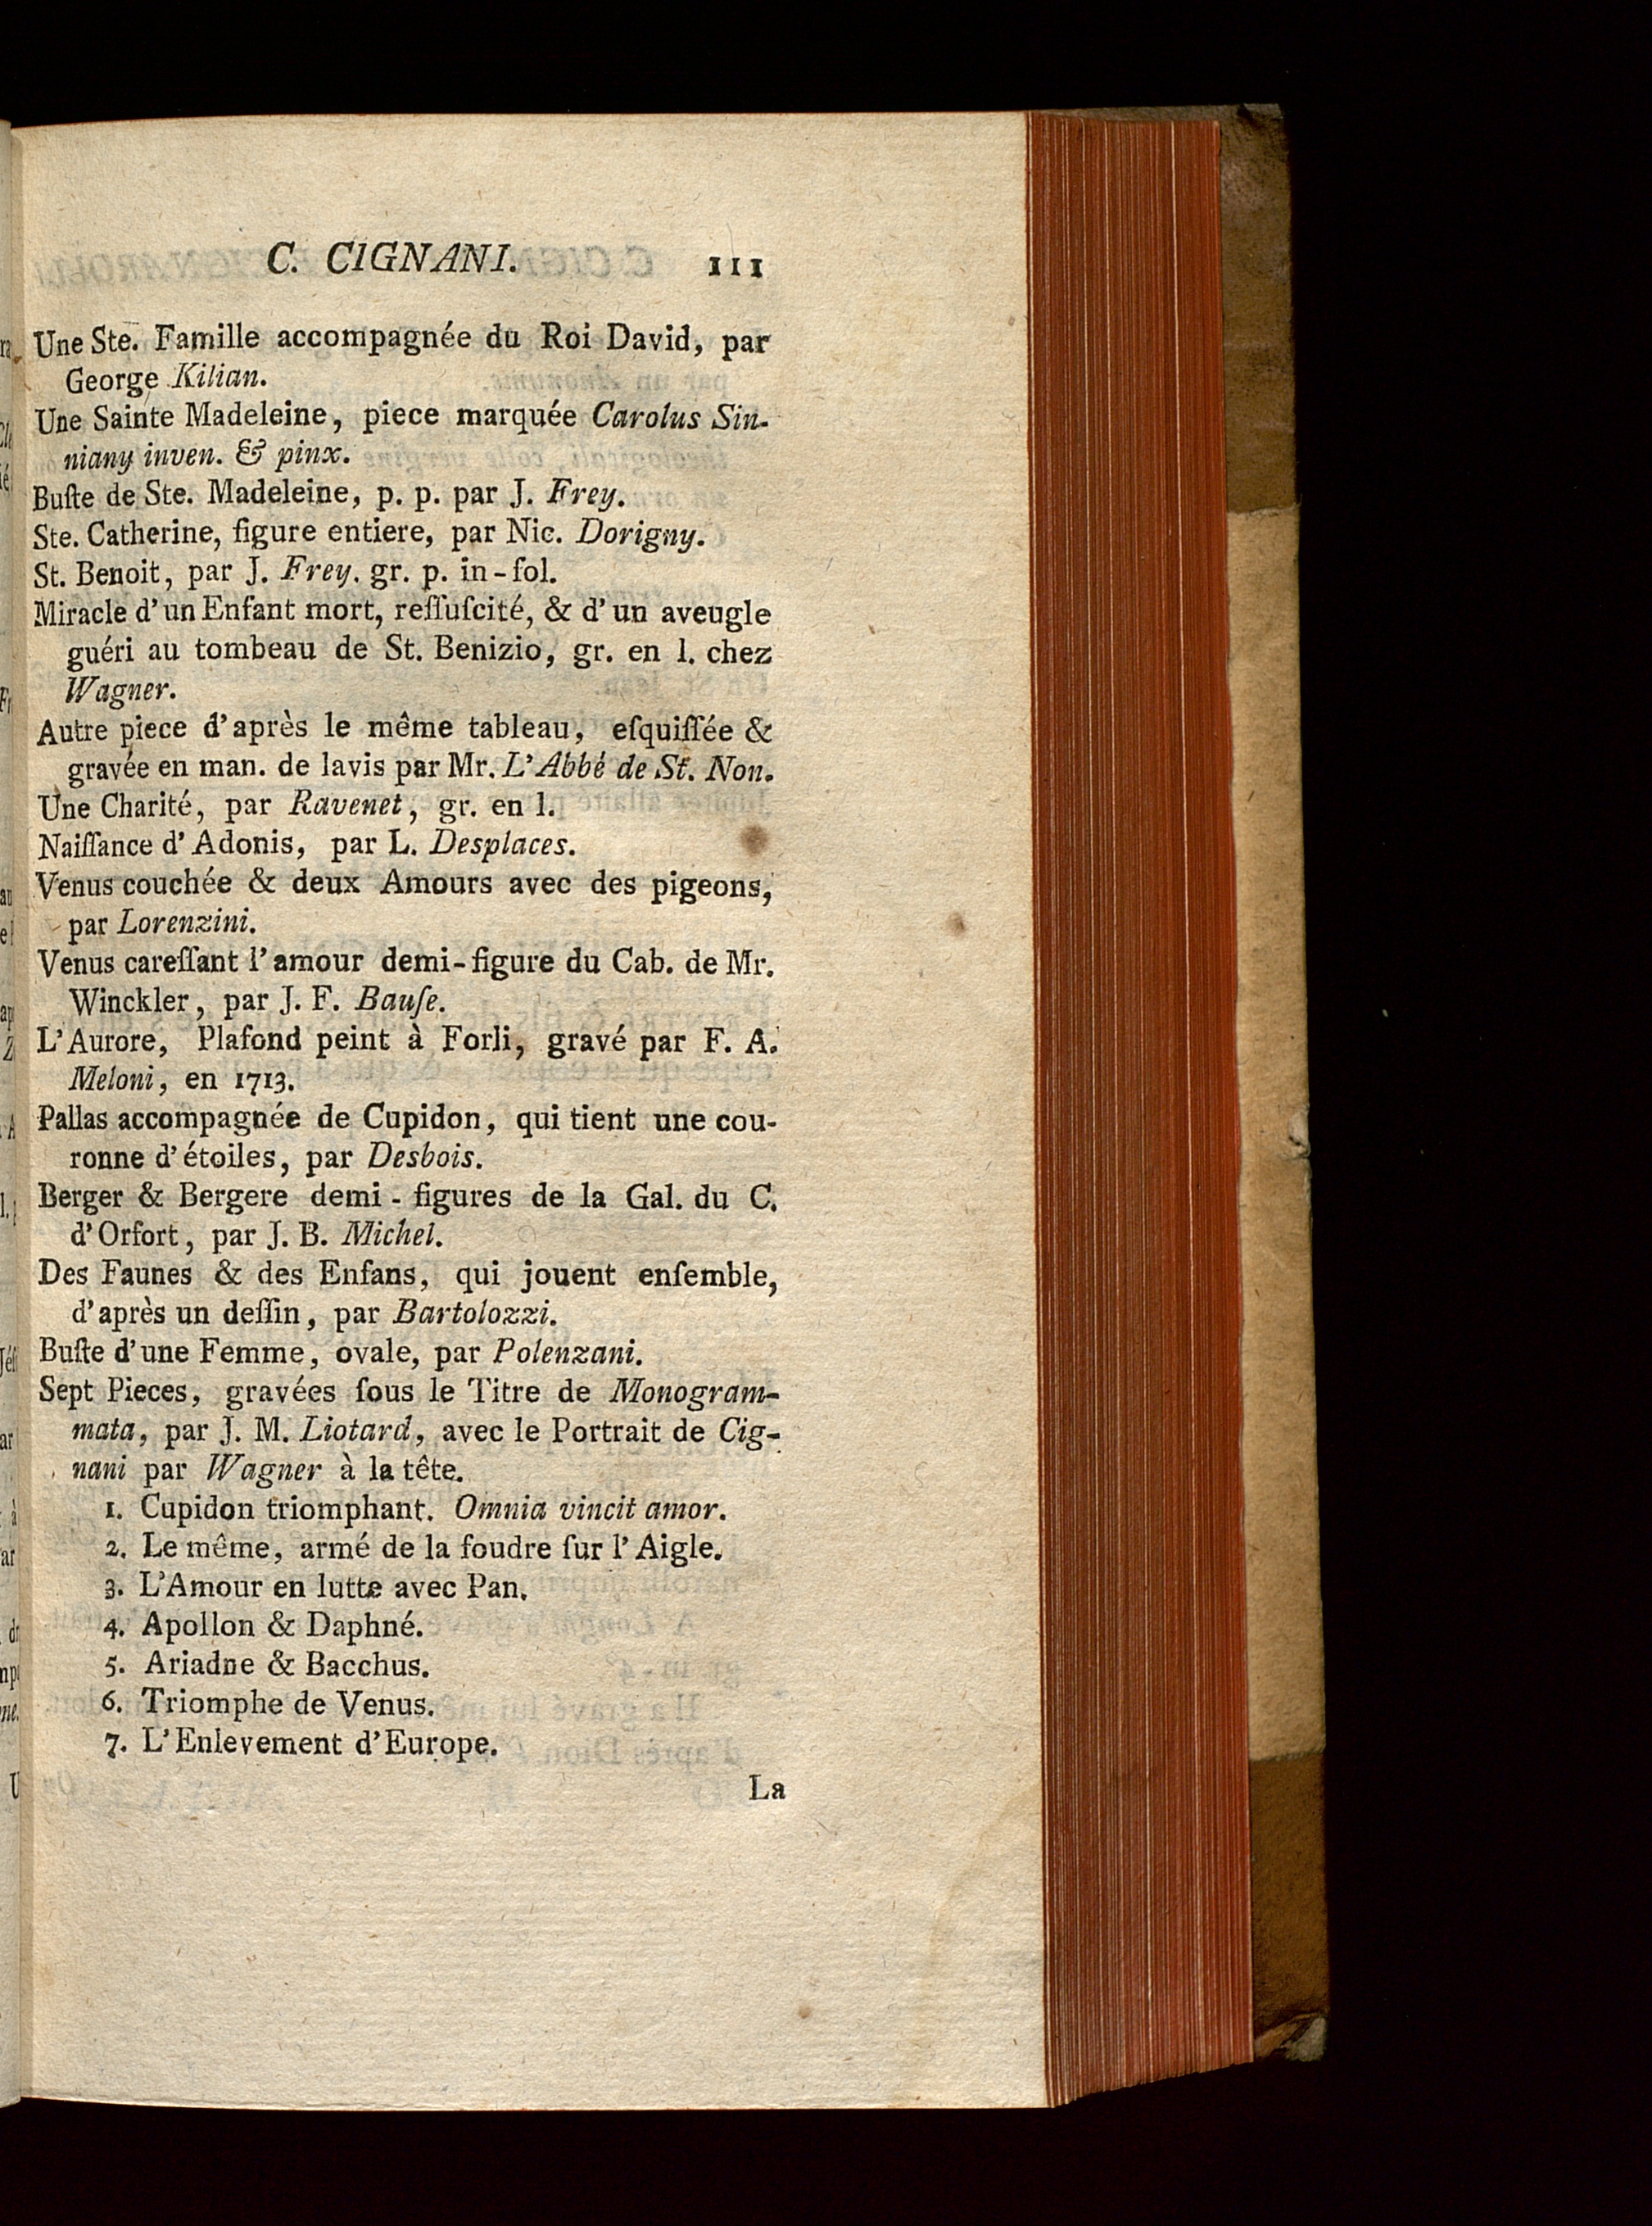 C. CIGNANI. 111
Une Ste. Famille accompagnée du Roi David, par
George Kilian.
Une Sainte Madeleine, piece marquée Carolus Sin-
niany inven. & pinx.
Buſte de Ste. Madeleine, p. p. par J. Frey.
Ste. Catherine, figure entiere, par Nic. Dorigny.
St. Benoit, par J. Frey. gr. p. in-fol.
Miracle d'un Enfant mort, reſſuſcité, & d'un aveugle
guéri au tombeau de St. Benizio, gr. en l. chez
Wagner.
Autre piece d'après le même tableau, eſquiſſée &
gravée en man. de lavis par Mr. L'Abbé de St. Non.
Une Charité, par Ravenet, gr. en l.
Naiſſance d'Adonis, par L. Desplaces.
Venus couchée & deux Amours avec des pigeons,
par Lorenzini.
Venus careſſant l'amour demi-figure du Cab. de Mr.
Winckler, par J. F. Bauſe.
L'Aurore, Plafond peint à Forli, gravé par F. A.
Meloni, en 1713.
Pallas accompagnée de Cupidon, qui tient une cou-
ronne d'étoiles, par Desbois.
Berger & Bergere demi-figures de la Gal. du C.
d'Orfort, par J. B. Michel.
Des Faunes & des Enfans, qui jouent enſemble,
d'après un deſſin, par Bartolozzi.
Buſte d'une Femme, ovale, par Polenzani.
Sept Pieces, gravées ſous le Titre de Monogram-
mata, par J. M. Liotard, avec le Portrait de Cig-
nani par Wagner à la tête.
1. Cupidon triomphant. Omnia vincit amor.
2. Le même, armé de la foudre ſur l'Aigle.
3. L'Amour en lutte avec Pan.
4. Apollon & Daphné.
5. Ariadne & Bacchus.
6. Triomphe de Venus.
7. L'Enlevement d'Europe.
La